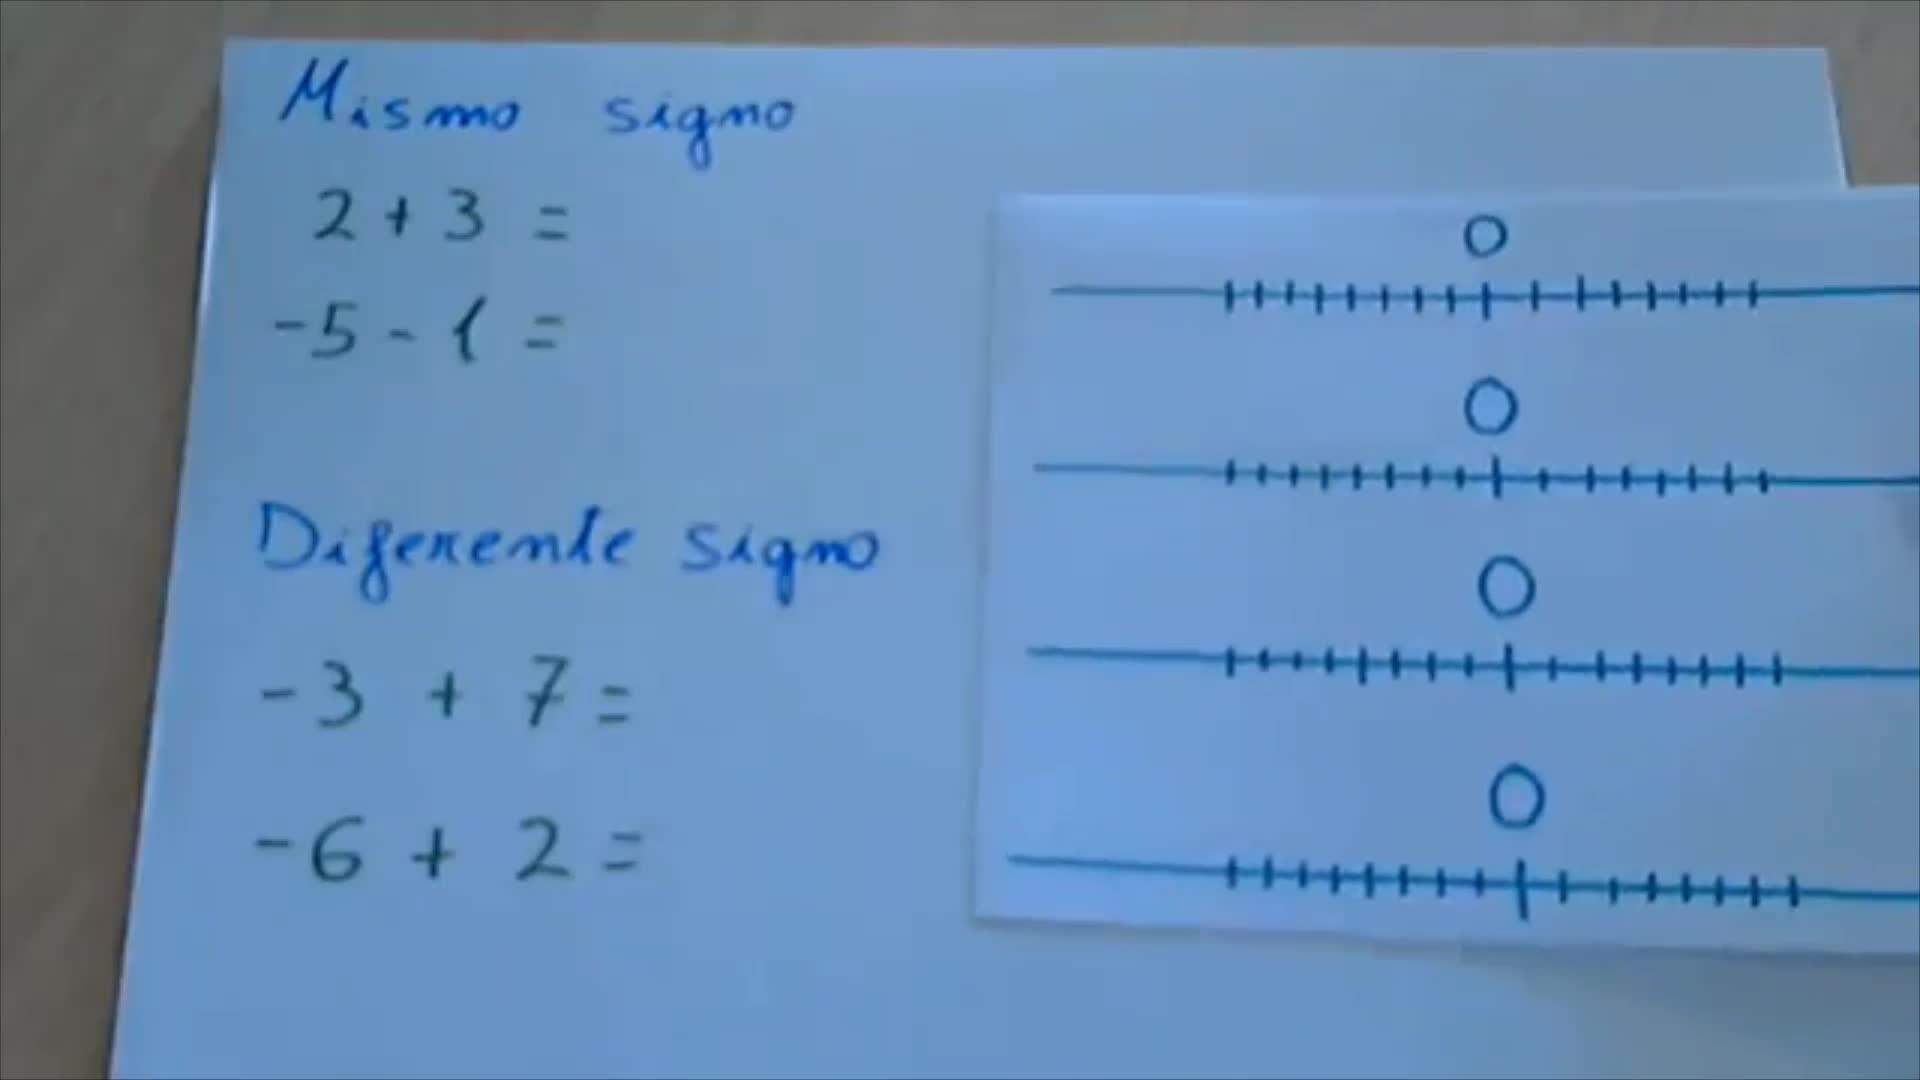 Mismo signo
2 + 3 =
-5 - 1 =
Diferente signo
-3 + 7 =
-6 + 2 =
0
0
0
0